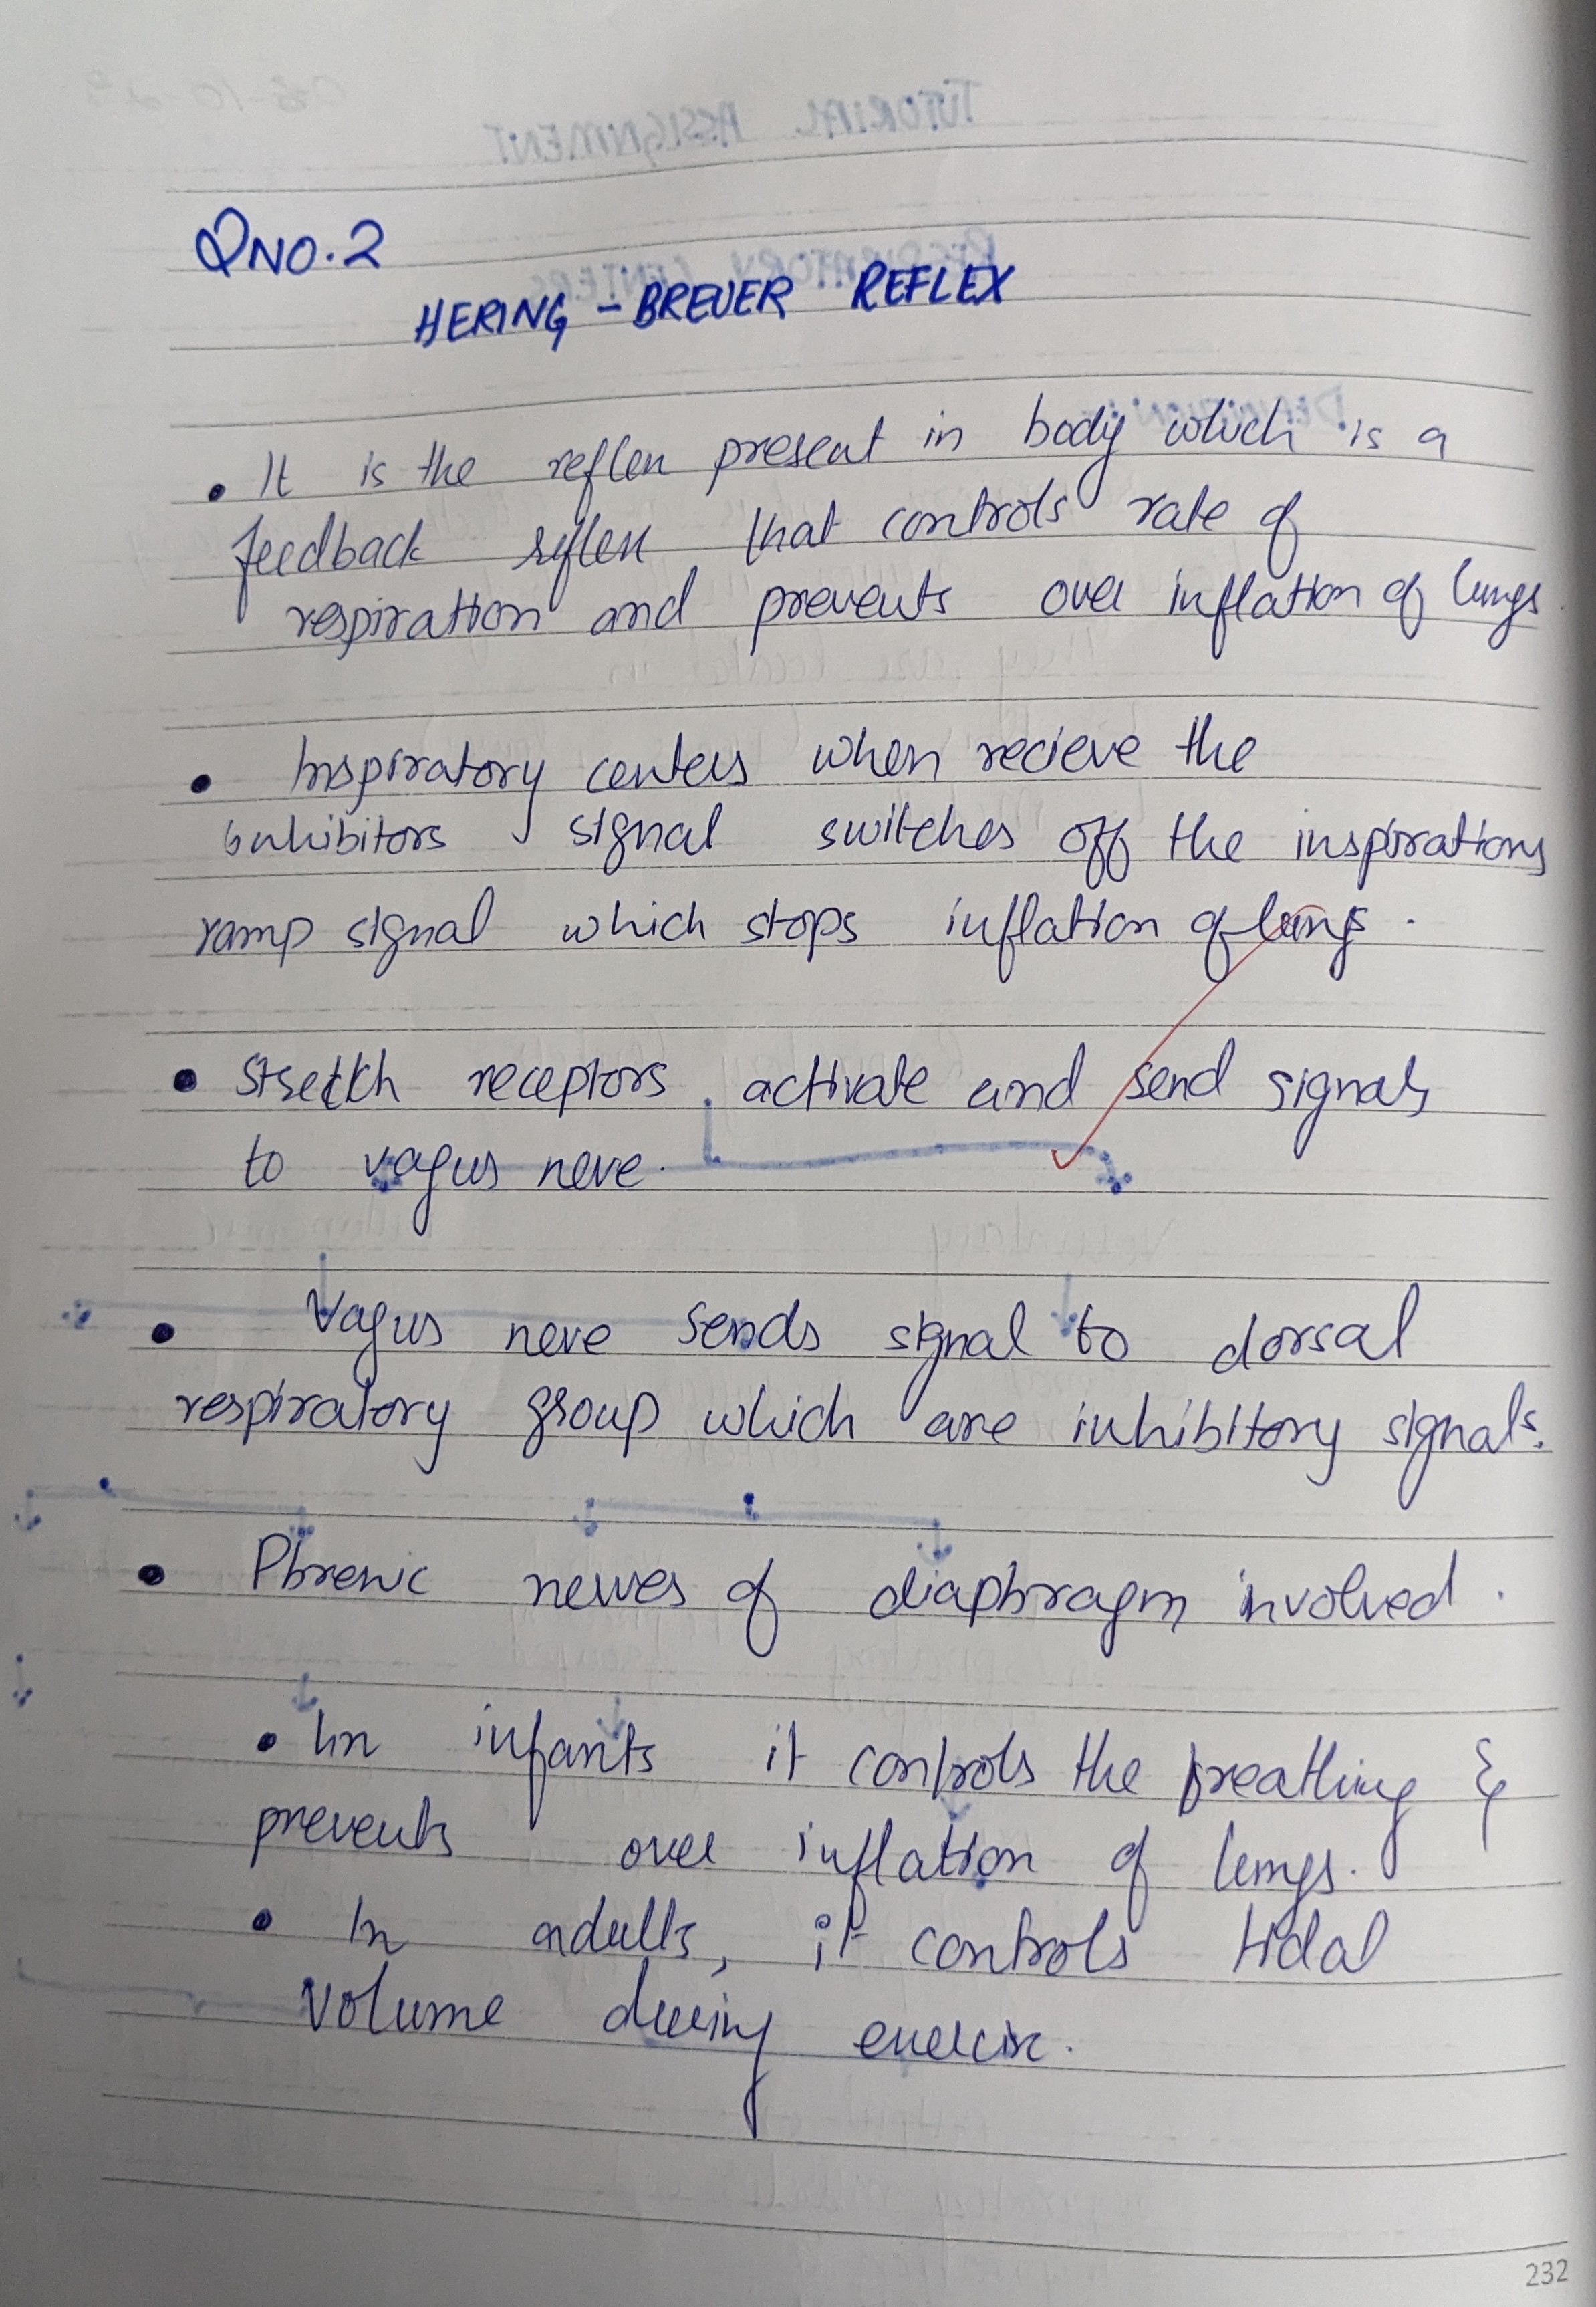 QNO.2
HERING - BREUER REFLEX
• It is the reflex present in body which is a
feedback reflex that controls rate of
respiration and prevents over inflation of lungs.
• Inspiratory centers when recieve the
inhibitors signal switches off the inspirations
ramp signal which stops inflation of lungs.
• Stretch receptors activate and send signals
to vagus nerve.
• Vagus nerve sends signal to dorsal
respiratory group which are inhibitory signals.
• Phrenic nerves of diaphragm involved.
• In infants it controls the breathing &
prevents over inflation of lungs.
• In adults, it controls tidal
volume during exercise.
232